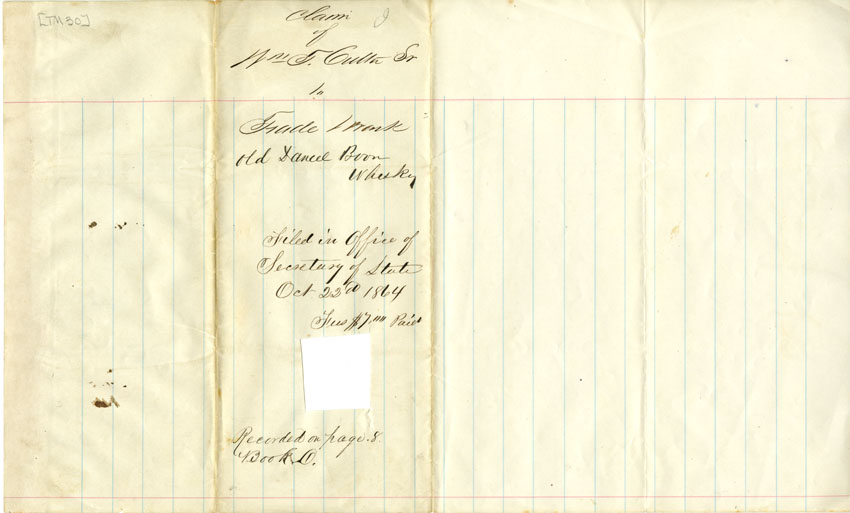 [TM30]
Claim
of
Wm T. Cutter Sr
to
Trade Mark
Old Daniel Boon
Whisky
Filed in Office of
Secretary of State
Oct. 22d 1864
Fees $7.00 Paid
Recorded on page 8
Book D.